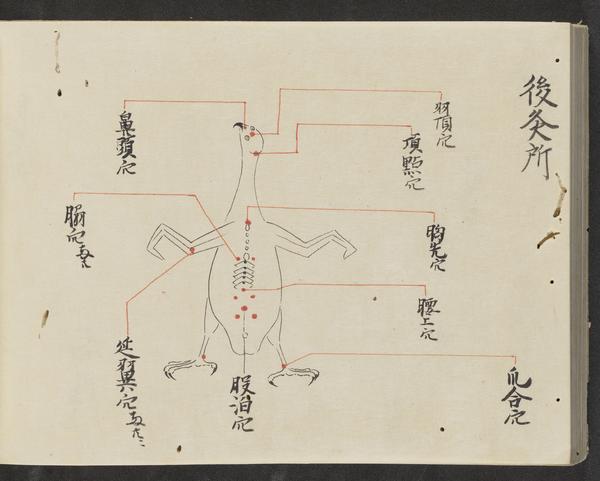 後灸所
羽頂穴
頂點穴
胸先穴
腰上穴
爪合穴
鼻頭穴
股泊穴
延羽翼穴左右ニ
穴左右